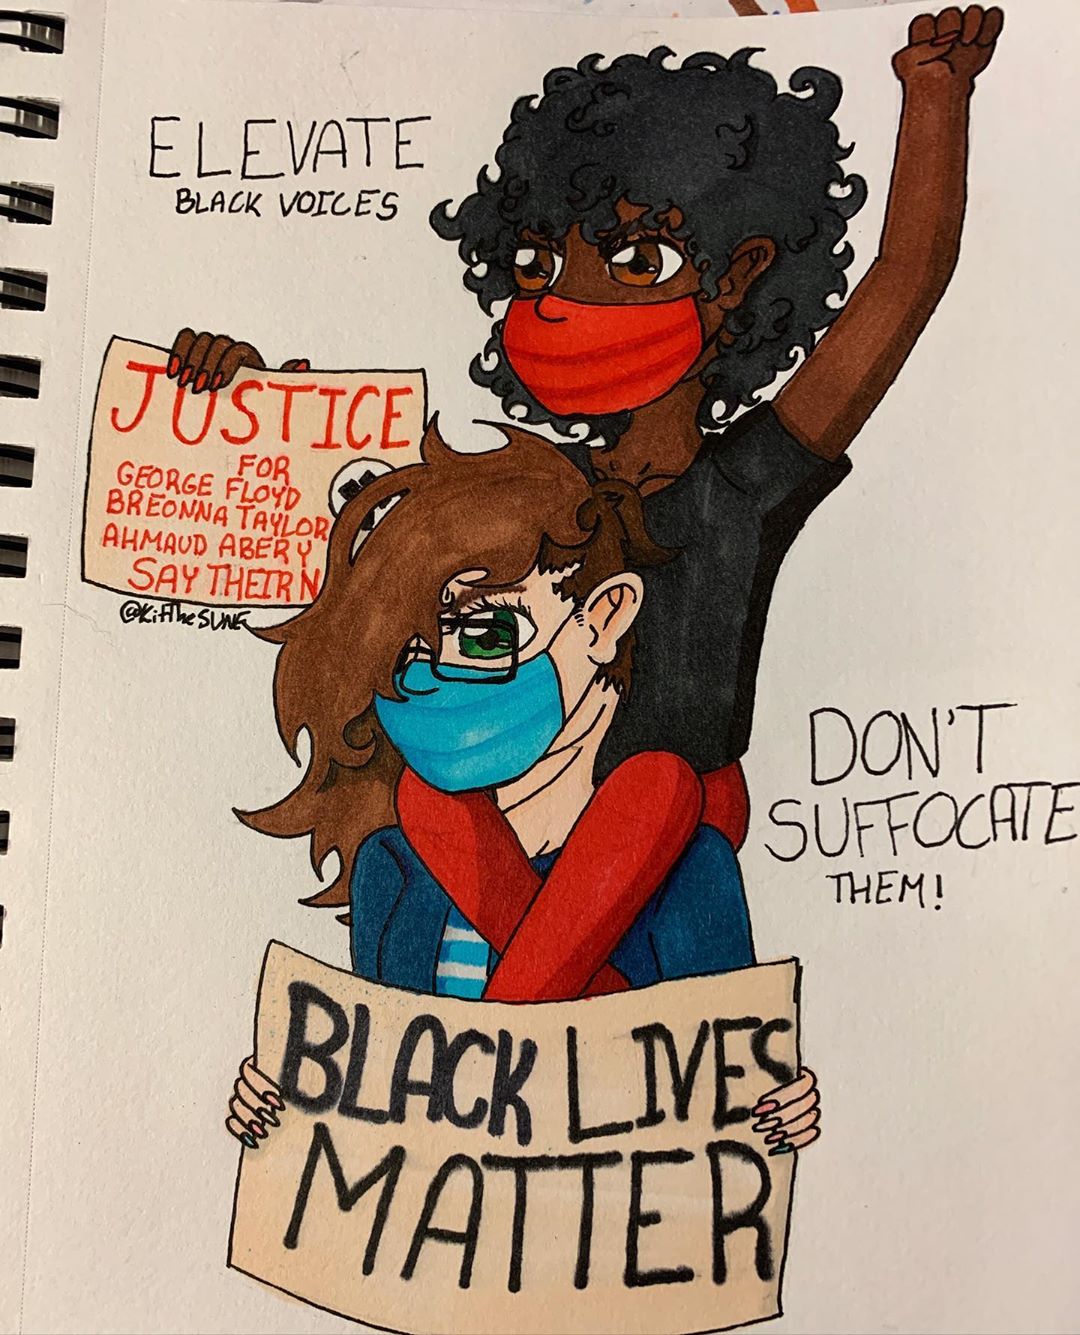 ELEVATE
BLACK VOICES
JUSTICE
FOR
GEORGE FLOYD
BREONNA TAYLOR
AHMAUD ABERY
SAY THEIR N
DON'T
SUFFOCATE
THEM!
BLACK LIVES
MATTER